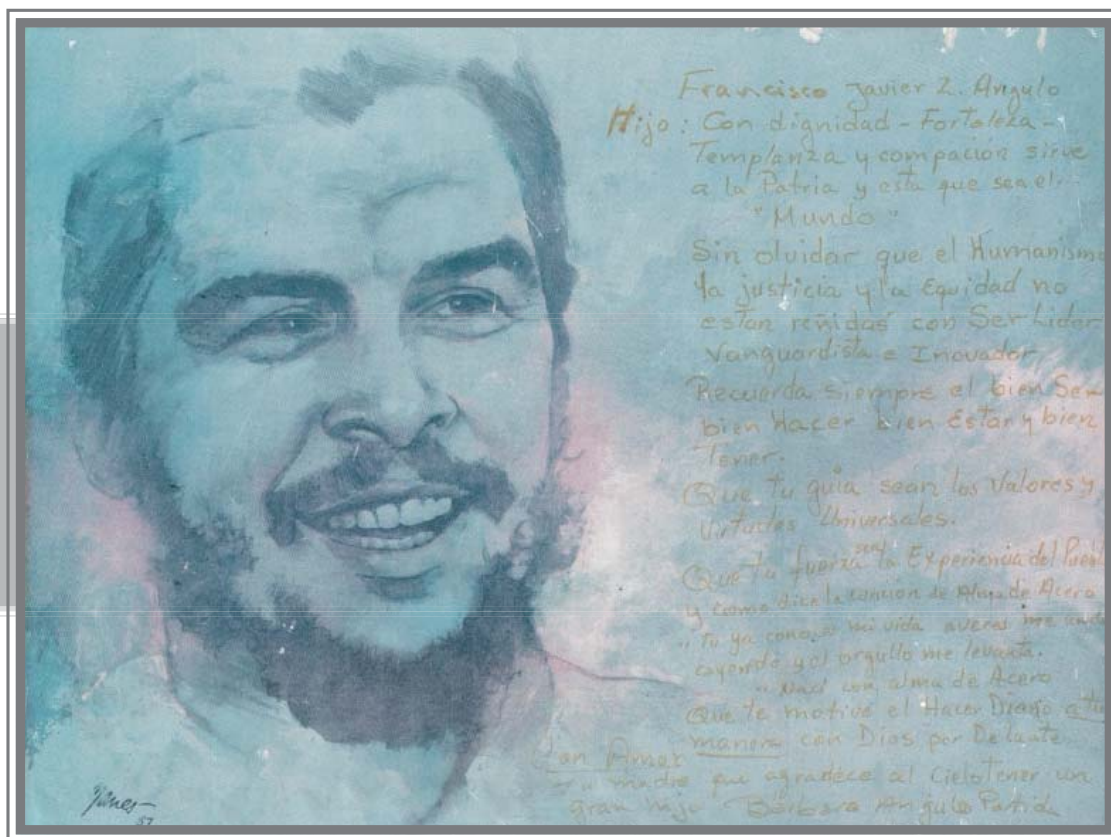 Francisco Javier Z. Angulo
Hijo: Con dignidad - Fortaleza -
Templanza y compación sirve
a la Patria y esta que sea el...
"Mundo"
Sin olvidar que el Humanismo
la justicia y la Equidad no
estan reñidas con Ser Lider
Vanguardista e Inovador
Recuerda siempre el bien Ser
bien Hacer bien Estar y bien
Tener.
Que tu guia sean los Valores y
Virtudes Universales.
Que tu fuerza sea la Experiencia del
y como dice la canción de Alma de Acero
"Tu ya conoces mi vida averas me
cayendo y el orgullo me levanta.
"Naci con alma de Acero
Que te motive el Hacer Diario a tu
manera con Dios por Delante
Con Amor
Tu madre que agradece al Cielo tener un
gran hijo Bárbara Angulo
Yanes
57